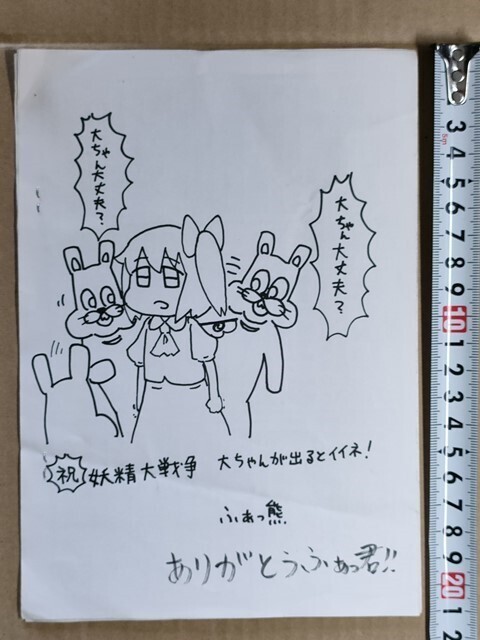 大ちゃん大丈夫？
大ちゃん大丈夫？
祝 妖精大戦争 大ちゃんが出るとイイネ！
ふぁっ熊
ありがとうふぁっ君!!
3 4 5 6 7 8 9 10 1 2 3 4 5 6 7 8 9 20 1 2
5m